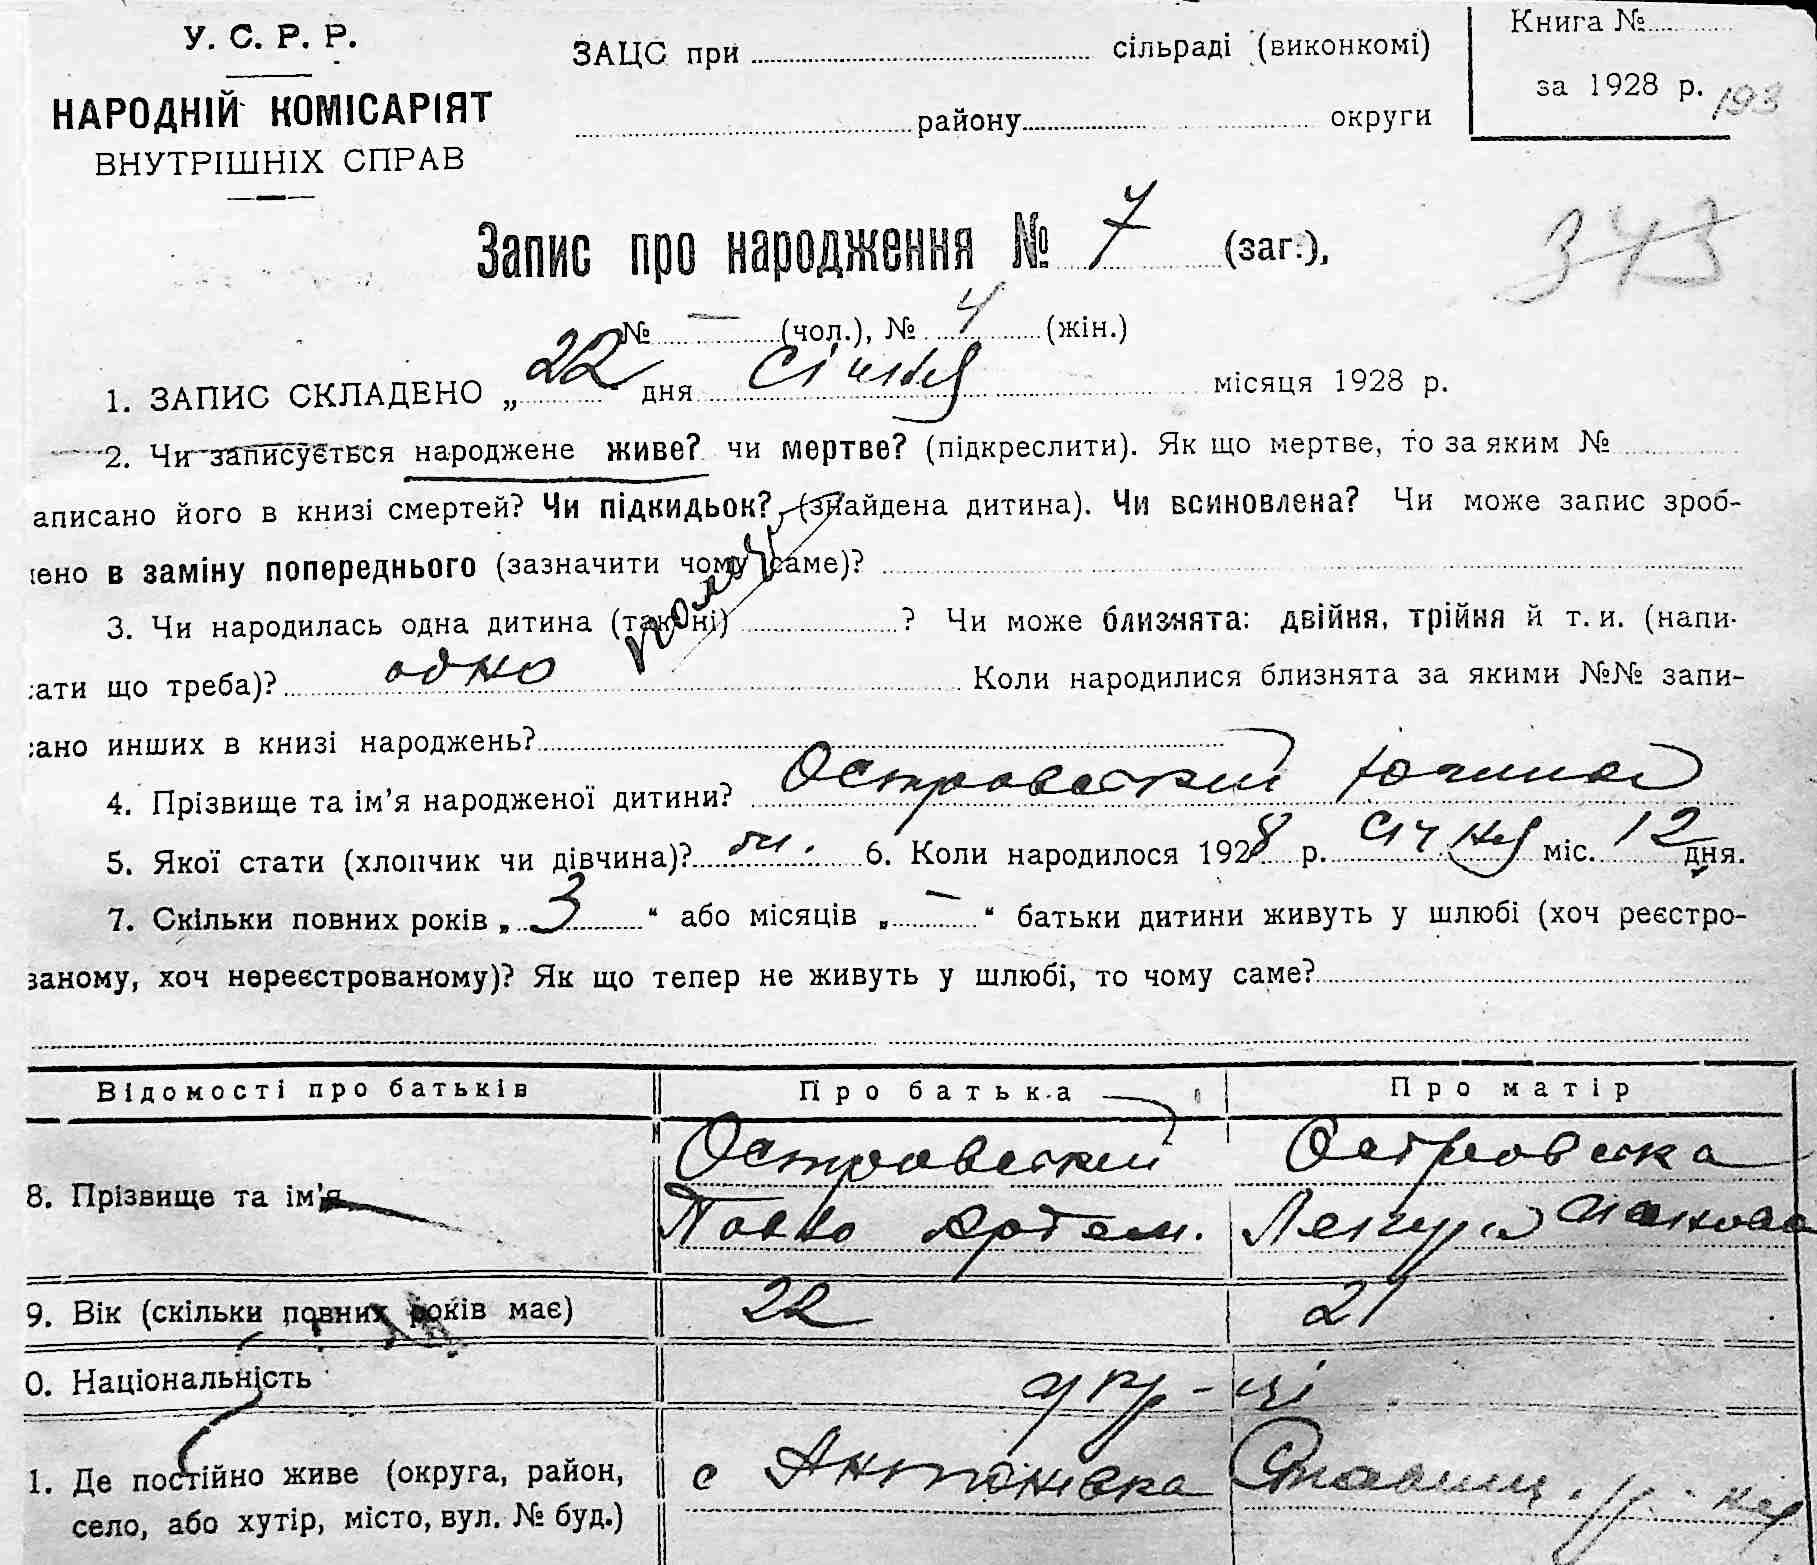 У. С. Р. Р.
НАРОДНІЙ КОМІСАРІЯТ
ВНУТРІШНІХ СПРАВ
ЗАЦС при сільраді (виконкомі)
району округи
Книга №
за 1928 р.
193
343
Запис про народження № 7 (заг.),
№ — (чол.), № 4 (жін.)
1. ЗАПИС СКЛАДЕНО „ 22 дня Січня місяця 1928 р.
2. Чи записується народжене живе? чи мертве? (підкреслити). Як що мертве, то за яким №
аписано його в книзі смертей? Чи підкидьок? (знайдена дитина). Чи всиновлена? Чи може запис зроб-
ено в заміну попереднього (зазначити чому саме)?
3. Чи народилась одна дитина (так ні) ? Чи може близнята: двійня, трійня й т. и. (напи-
ати що треба)? одно Коли народилися близнята за якими №№ запи-
ано инших в книзі народжень?
4. Прізвище та ім'я народженої дитини? Островский
5. Якої стати (хлопчик чи дівчина)? 6. Коли народилося 1928 р. січня міс. 12 дня.
7. Скільки повних років „ 3 “ або місяців „ — “ батьки дитини живуть у шлюбі (хоч реєстро-
ваному, хоч нереєстрованому)? Як що тепер не живуть у шлюбі, то чому саме?
Відомості про батьків Про батька Про матір
8. Прізвище та ім'я Островский Островска
Павло Артем.
9. Вік (скільки повних років має) 22 21
0. Національність укр-ці
1. Де постійно живе (округа, район, с Антонівка
село, або хутір, місто, вул. № буд.)